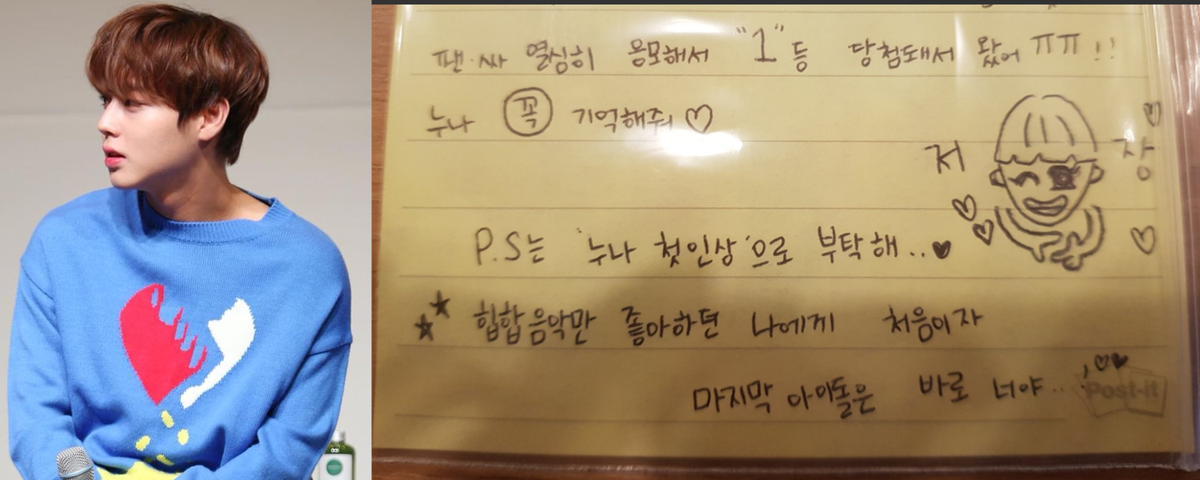 팬·싸 열심히 응모해서 "1"등 당첨돼서 왔어 ㅠㅠ!!
누나 꼭 기억해줘♡
저 장
P.S는 '누나 첫인상'으로 부탁해..♥
★★ 힙합음악만 좋아하던 나에게 처음이자
마지막 아이돌은 바로 너야..!♡♥
Post-it